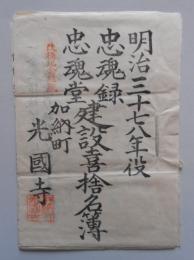 明治三十七八年役
忠魂録
忠魂堂建設喜捨名簿
加納町
光國寺